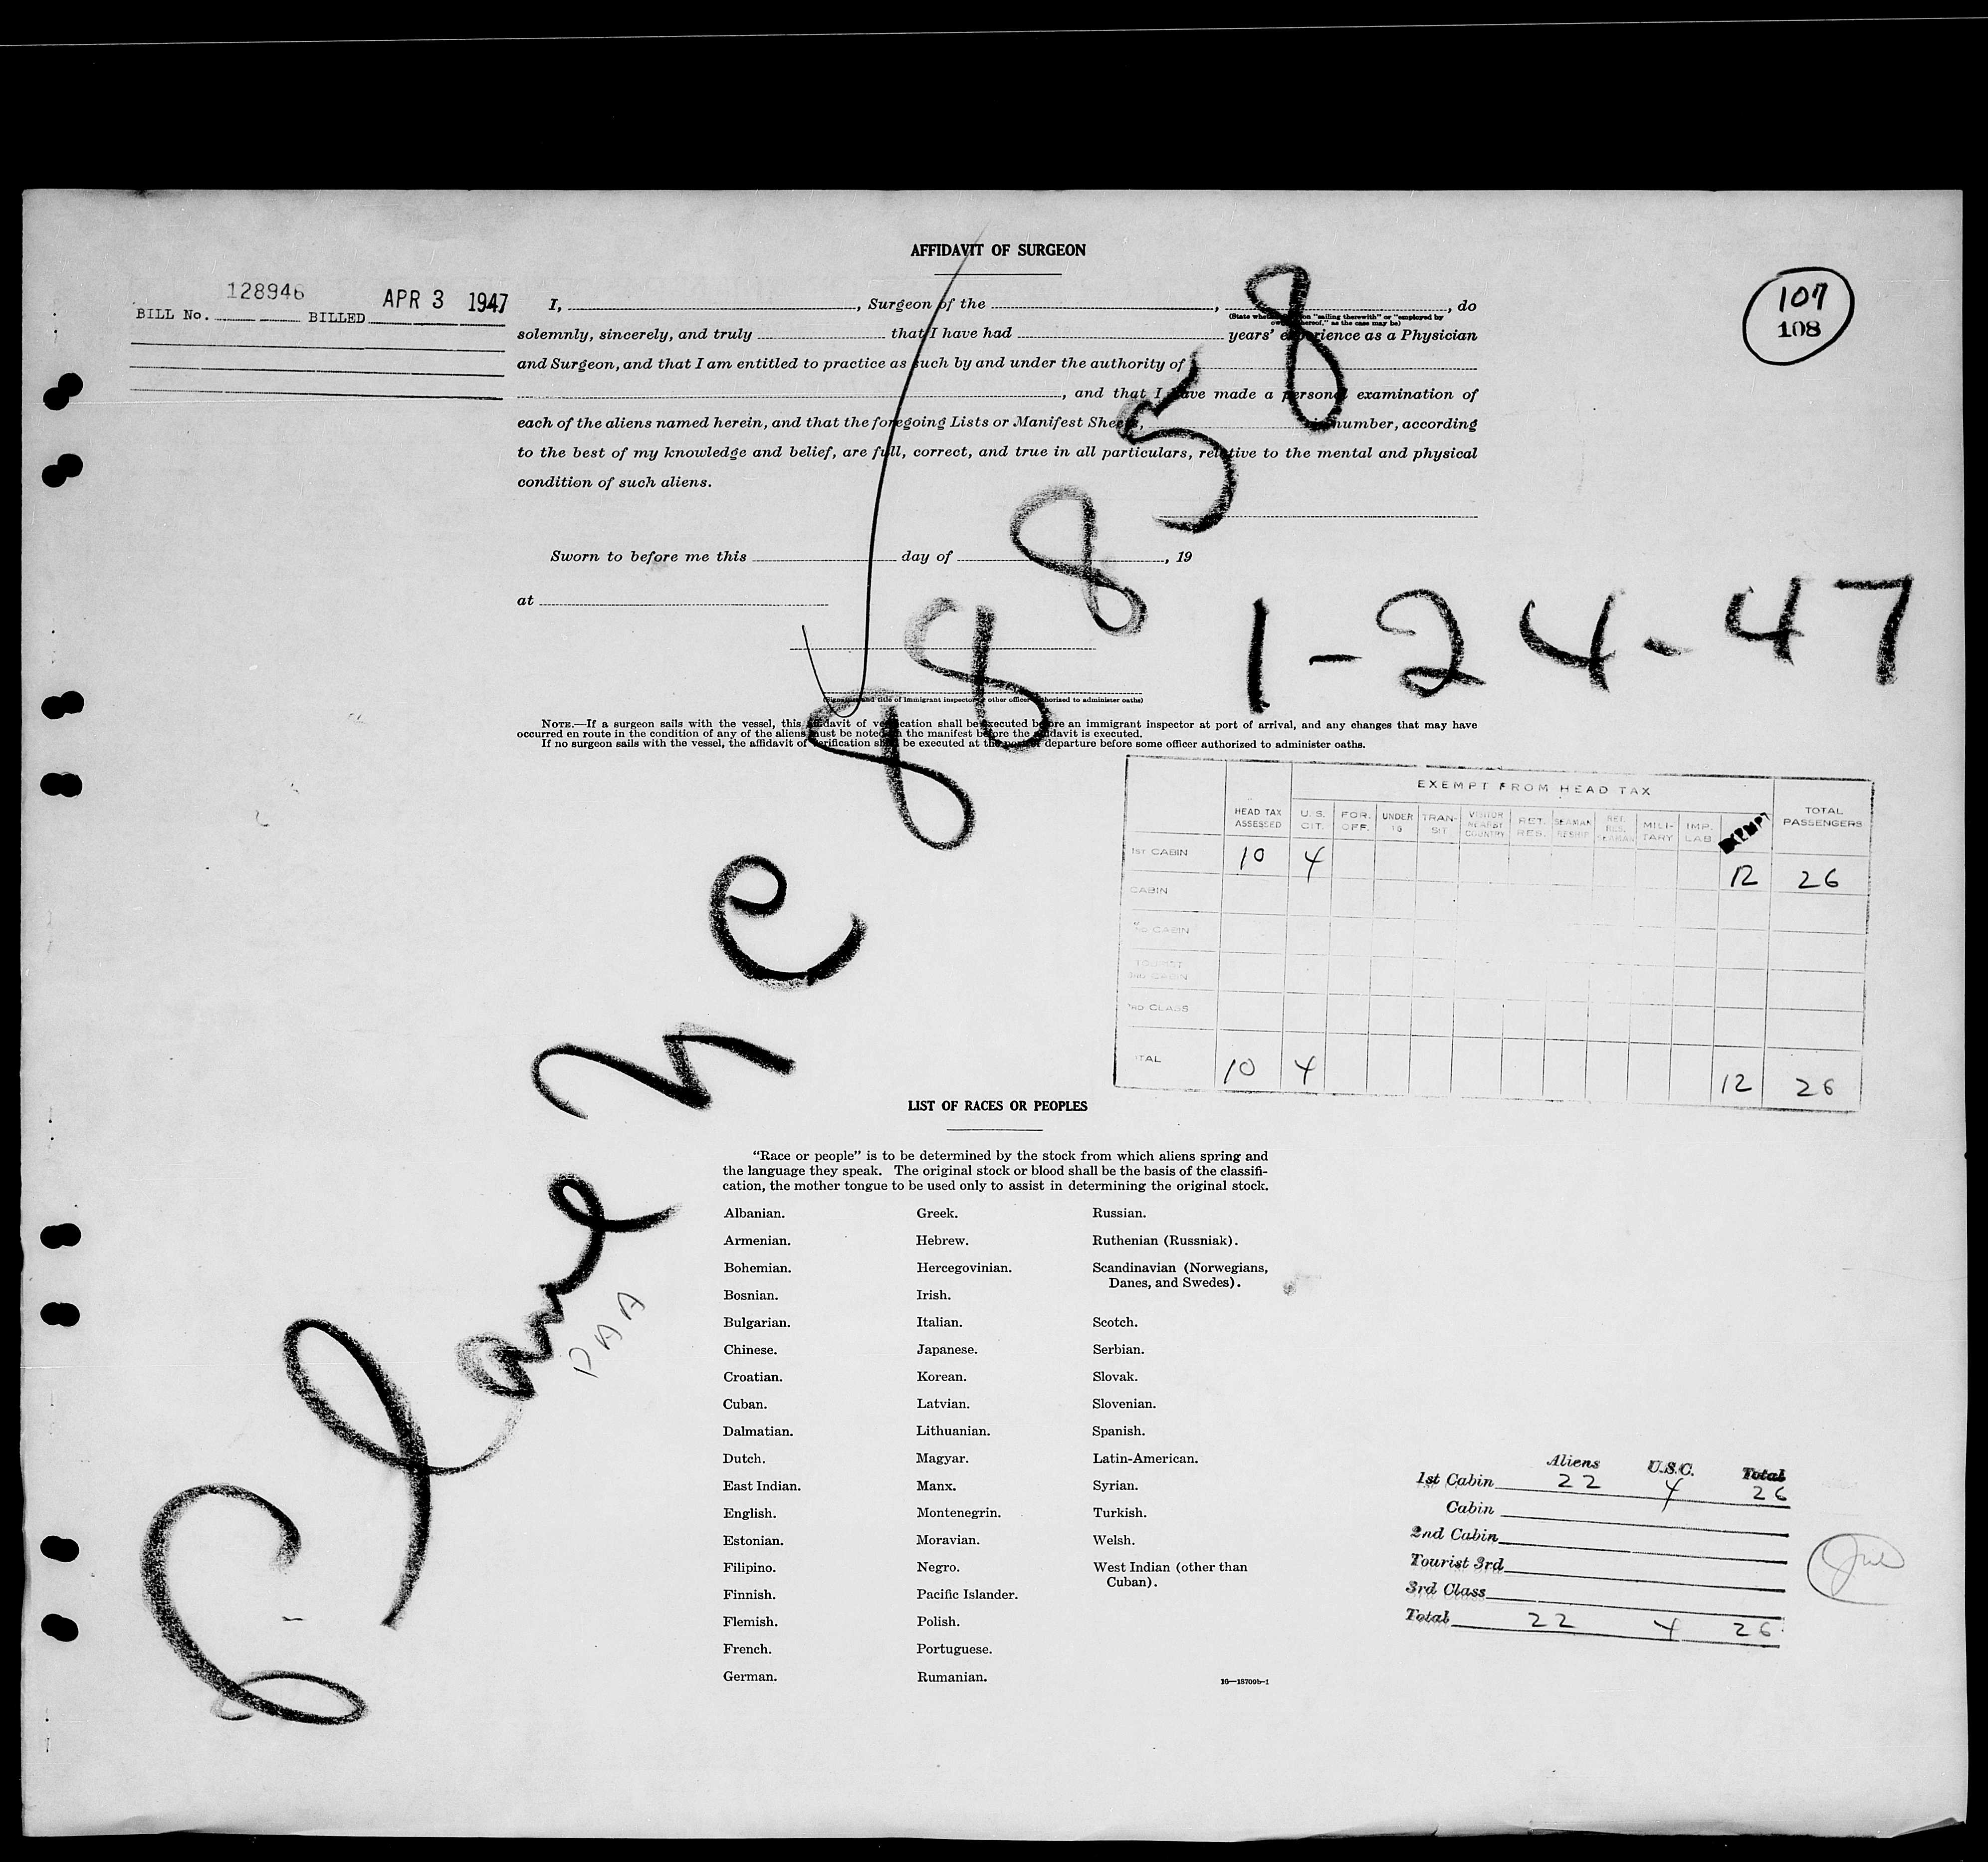 AFFIDAVIT OF SURGEON
128946 APR 3 1947
BILL No. BILLED
107
108
I, , Surgeon of the , , do
(State whether "sailing therewith" or "employed by
owners thereof," as the case may be)
solemnly, sincerely, and truly that I have had years' experience as a Physician
and Surgeon, and that I am entitled to practice as such by and under the authority of
, and that I have made a personal examination of
each of the aliens named herein, and that the foregoing Lists or Manifest Sheets, number, according
to the best of my knowledge and belief, are full, correct, and true in all particulars, relative to the mental and physical
condition of such aliens.
Sworn to before me this day of , 19
at
(Signature and title of immigrant inspector or other officer authorised to administer oaths)
NOTE.—If a surgeon sails with the vessel, this affidavit of verification shall be executed before an immigrant inspector at port of arrival, and any changes that may have
occurred en route in the condition of any of the aliens must be noted on the manifest before the affidavit is executed.
If no surgeon sails with the vessel, the affidavit of verification shall be executed at the port of departure before some officer authorized to administer oaths.
Plane NC 88858
1-24-47
PAA
EXEMPT FROM HEAD TAX
HEAD TAX ASSESSED U.S. CIT. FOR. OFF. UNDER 16 TRANSIT VISITOR NEAREST COUNTRY RET. RES. SEAMAN RESHIP RET. RES. SEAMAN MILITARY IMP. LAB EXEMPT TOTAL PASSENGERS
1ST CABIN 10 4 12 26
CABIN
2ND CABIN
TOURIST 3RD CABIN
3RD CLASS
TOTAL 10 4 12 26
LIST OF RACES OR PEOPLES
"Race or people" is to be determined by the stock from which aliens spring and
the language they speak. The original stock or blood shall be the basis of the classifi-
cation, the mother tongue to be used only to assist in determining the original stock.
Albanian. Greek. Russian.
Armenian. Hebrew. Ruthenian (Russniak).
Bohemian. Hercegovinian. Scandinavian (Norwegians,
Danes, and Swedes).
Bosnian. Irish.
Bulgarian. Italian. Scotch.
Chinese. Japanese. Serbian.
Croatian. Korean. Slovak.
Cuban. Latvian. Slovenian.
Dalmatian. Lithuanian. Spanish.
Dutch. Magyar. Latin-American.
East Indian. Manx. Syrian.
English. Montenegrin. Turkish.
Estonian. Moravian. Welsh.
Filipino. Negro. West Indian (other than
Cuban).
Finnish. Pacific Islander.
Flemish. Polish.
French. Portuguese.
German. Rumanian.
16—18709b-1
Aliens U.S.C. Total
1st Cabin 22 4 26
Cabin
2nd Cabin
Tourist 3rd
3rd Class
Total 22 4 26